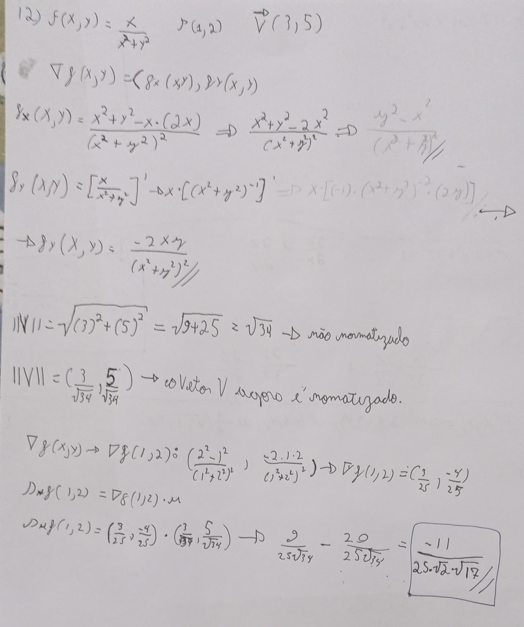 12) f(x,y) = x/(x²+y²)   P(1,2)   V⃗(3,5)
∇f(x,y) = (fx(x,y), fy(x,y)
fx(x,y) = (x²+y²-x·(2x))/(x²+y²)² ⇒ (x²+y²-2x²)/(x²+y²)² ⇒ (y²-x²)/(x²+y²)²//
fy(x,y) = [x/(x²+y²)]' → x·[(x²+y²)⁻¹]' ⇒ x·[(-1)·(x²+y²)⁻²·(2y)] →
→ fy(x,y) = -2xy/(x²+y²)²//
||V|| = √((3)²+(5)²) = √(9+25) = √34 → não normatizado
||V|| = (3/√34, 5/√34) → o Vetor V agora é nomatizado.
∇f(x,y) → ∇f(1,2): ((2²-1)²/(1²+2²)², -2·1·2/(1²+2²)²) → ∇f(1,2) = (3/25, -4/25)
Duf(1,2) = ∇f(1,2)·u
Duf(1,2) = (3/25, -4/25)·(3/√34, 5/√34) → 9/(25√34) - 20/(25√34) = -11/(25·√2·√17)//